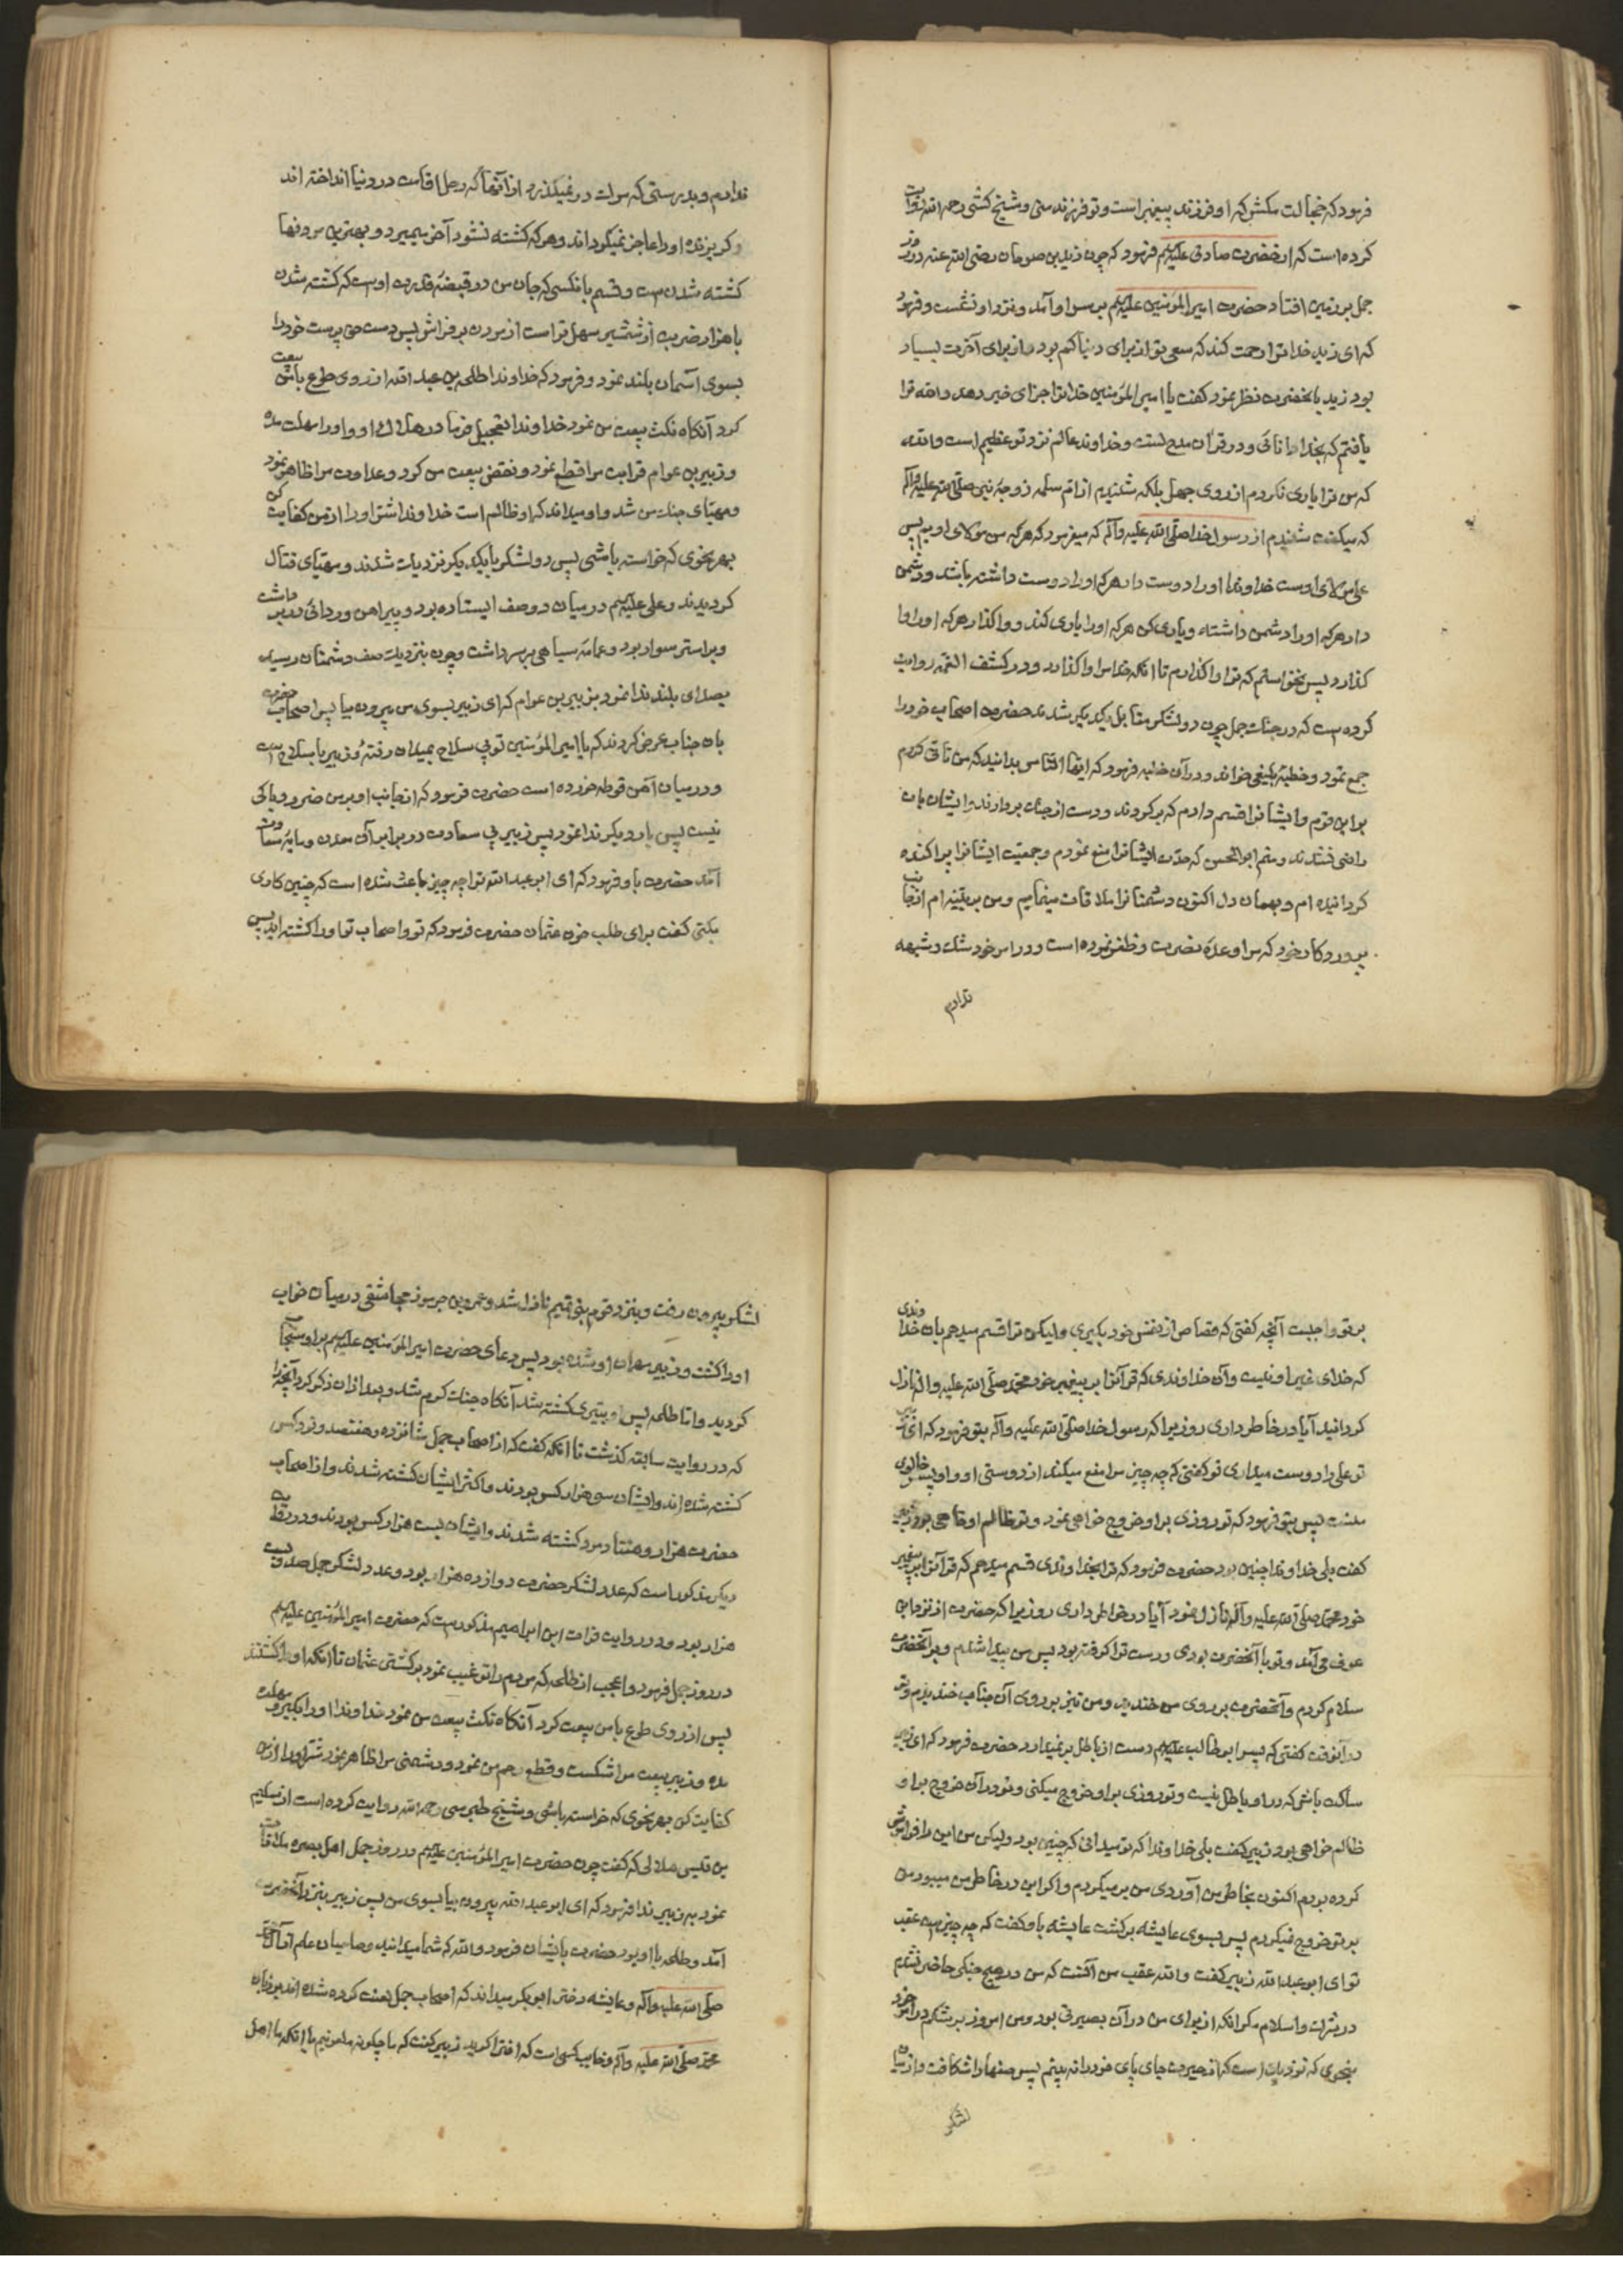 فرمود که خجالت مکش که او فرزند پیغمبر است و تو فرزند منی و شیخ کشی رحمه الله روایت
کرده است که از حضرت صادق علیه‌السلم فرمود که چون زید بن صوحان رضی الله عنه در روز
جمل بر زمین افتاد حضرت امیرالمؤمنین علیه‌السلم بر سر او آمد و نزد او نشست و فرمود
که ای زید خدا ترا رحمت کند که سعی تو از برای دنیا کم بود و از برای آخرت بسیار
بود زید بانحضرت نظر نمود گفت یا امیرالمؤمنین خدا ترا جزای خیر دهد والله ترا
یافتم که بخدا دانائی و در قرآن مدح تست و خداوند عالم نزد تو عظیم است والله
که من ترا یاری نکردم از روی جهل بلکه شنیدم از ام سلمه زوجه نبی صلی الله علیه وآله
که میگفت شنیدم از رسول خدا صلی الله علیه وآله که میفرمود که هر که من مولای اویم پس
علی مولای اوست خداوندا او را دوست دار هر که او را دوست داشته باشد و دشمن
دار هر که او را دشمن داشته و یاری کن هر که او را یاری کند و واگذار هر که او را وا
گذارد پس نخواستم که ترا واگذارم تا انکه خدا مرا واگذارد و در کشف الغمه روایت
کرده است که در جنک جمل چون دو لشکر مقابل یکدیکر شدند حضرت اصحاب خود را
جمع نمود و خطبه بلیغی خواند و در آن خطبه فرمود که ایها الناس بدانید که من تانی کردم
بر این قوم و ایشانرا قسم دادم که برگردند و دست از جنک بردارند ایشان بان
راضی نشدند و منم ابوالحسن که حدت ایشانرا منع نمودم و جمعیت ایشانرا پراکنده
گردانیده ام و بهمان دل اکنون دشمنانرا ملاقات مینمایم و من بر بینه ام از جانب
پروردکار خود که مرا وعده نصرت و ظفر نموده است و در امر خود شک و شبهه
ندارم
ندارم و بدرستی که موت در نمیگذرد از آنها که رحل اقامت در دنیا انداخته اند
و گریزنده او را عاجز نمیگرداند و هر که کشته نشود آخر میمیرد و بهترین مردنها
کشته شدنست و قسم بانکسی که جان من در قبضه قدرت اوست که کشته شدن
با هزار ضربت از شمشیر سهل تر است از مردن بر فراش پس دست حق پرست خود را
بسوی آسمان بلند نمود و فرمود که خداوندا طلحه بن عبدالله از روی طوع با من بیعت
کرد آنکاه نکث بیعت من نمود خداوندا تعجیل فرما در هلاک او و او را مهلت مده
و زبیر بن عوام قرابت مرا قطع نمود و نقض بیعت من کرد و عداوت مرا ظاهر نمود
و مهیای جنک من شد و او میداند که او ظالم است خداوندا شر او را از من کفایت کن
بهر نحوی که خواسته باشی پس دو لشکر بایکدیکر نزدیک شدند و مهیای قتال
گردیدند و علی علیه‌السلم در میان دو صف ایستاده بود و پیراهن و ردائی در بر داشت
و بر استر سوار بود و عمامه سیاهی بر سر داشت و چون بنزدیک صف دشمنان رسید
بصدای بلند ندا نمود بزبیر بن عوام که ای زبیر بسوی من بیرون بیا پس اصحاب حضرت
بان جناب عرض کردند که یا امیرالمؤمنین تو بی سلاح بمیدان رفته و زبیر با سلاح است
و در میان آهن غوطه خورده است حضرت فرمود که از جانب او بر من ضرر و باکی
نیست پس بار دیکر ندا نمود پس زبیر بی سعادت در برابر آن معدن و مایه سعادت
آمد حضرت باو فرمود که ای ابوعبدالله ترا چه چیز باعث شده است که چنین کاری
بکنی گفت برای طلب خون عثمان حضرت فرمود که تو و اصحاب تو او را کشته اید پس
بر تو واجبست آنچه گفتی که قصاص از نفس خود بگیری ولیکن ترا قسم میدهم بان خداوندی
که خدای غیر او نیست و آن خداوندی که قرآنرا بر پیغمبر خود محمد صلی الله علیه وآله نازل
گردانید آیا در خاطر داری روزیرا که رسول خدا صلی الله علیه وآله بتو فرمود که ای زبیر
تو علی را دوست میداری تو گفتی که چه چیز مرا منع میکند از دوستی او و او پسر خالوی
منست پس بتو فرمود که تو روزی بر او خروج خواهی نمود و تو ظالم او خواهی بود زبیر
گفت بلی خداوندا چنین بود حضرت فرمود که ترا بخداوندی قسم میدهم که قرآنرا بر پیغمبر
خود محمد صلی الله علیه وآله نازل نمود آیا در خاطر داری روزیرا که حضرت از نزد ابن
عوف می آمد و تو با آنحضرت بودی و دست ترا گرفته بود پس من پیدا شدم و بر آنحضرت
سلام کردم و آنحضرت بر روی من خندید و من نیز بر روی آن جناب خندیدم و تو
در آنوقت گفتی که پسر ابوطالب علیه‌السلم دست از باطل بر نمیدارد حضرت فرمود که ای زبیر
ساکت باش که در او باطل نیست و تو روزی بر او خروج میکنی و تو در آن خروج بر او
ظالم خواهی بود زبیر گفت بلی خداوندا که تو میدانی که چنین بود ولیکن من این را فراموش
کرده بودم اکنون بخاطر من آوردی من بر میگردم و اگر این در خاطر من میبود من
بر تو خروج نمیکردم پس بسوی عایشه برگشت عایشه باو گفت که چه چیز است عقب
تو ای ابوعبدالله زبیر گفت والله عقب من آنست که من در هیچ جنکی حاضر نشدم
در شرک و اسلام مگر انکه از برای من در آن بصیرتی بود و من امروز بر شکم در امر خود
بنحوی که نزدیک است که از حیرت جای پای خود را نه بینم پس صفها را شکافت و از میان
لشکر
لشکر بیرون رفت و بنزد قوم بنی تمیم نازل شد و عمرو بن جرموز مجاشعی در میان خواب
او را کشت و زبیر مهمان او شده بود پس دعای حضرت امیرالمؤمنین علیه‌السلم بر او مستجاب
گردید و اما طلحه پس او بتیری کشته شد آنکاه جنک گرم شد و بعد ازان ذکر کرد آنچه را
که در روایت سابقه گذشت تا انکه گفت که از اصحاب جمل شانزده و هفتصد و نود کس
کشته شده اند و ایشان سی هزار کس بودند و اکثر ایشان کشته شدند و از اصحاب
حضرت هزار و هفتاد مرد کشته شدند و ایشان بیست هزار کس بودند و در روایت
دیکر مذکور است که عدد لشکر حضرت دوازده هزار بود و عدد لشکر جمل صد و بیست
هزار بود و در روایت فرات ابن ابراهیم مذکور است که حضرت امیرالمؤمنین علیه‌السلم
در روز جمل فرمود واعجب از طلحه که مردم را ترغیب نمود بر کشتن عثمان تا انکه او را کشتند
پس از روی طوع با من بیعت کرد آنکاه نکث بیعت من نمود خداوندا او را بگیر و مهلت
مده و زبیر بیعت مرا شکست و قطع رحم من نمود و دشمنی مرا ظاهر نمود شر او را از من
کفایت کن بهر نحوی که خواسته باشی و شیخ طبرسی رحمه الله روایت کرده است از سلیم
بن قیس هلالی که گفت چون حضرت امیرالمؤمنین علیه‌السلم در روز جمل اهل بصره ملاقات
نمود به زبیر ندا فرمود که ای ابوعبدالله بیرون بیا بسوی من پس زبیر بنزد آنحضرت
آمد و طلحه با او بود حضرت بایشان فرمود والله که شما میدانید و صاحبان علم از آل محمد
صلی الله علیه وآله و عایشه دختر ابوبکر میداند که اصحاب جمل لعنت کرده شده اند بر زبان
محمد صلی الله علیه وآله و خایب کسی است که افترا گوید زبیر گفت که ما چگونه ملعونیم با انکه ما اهل